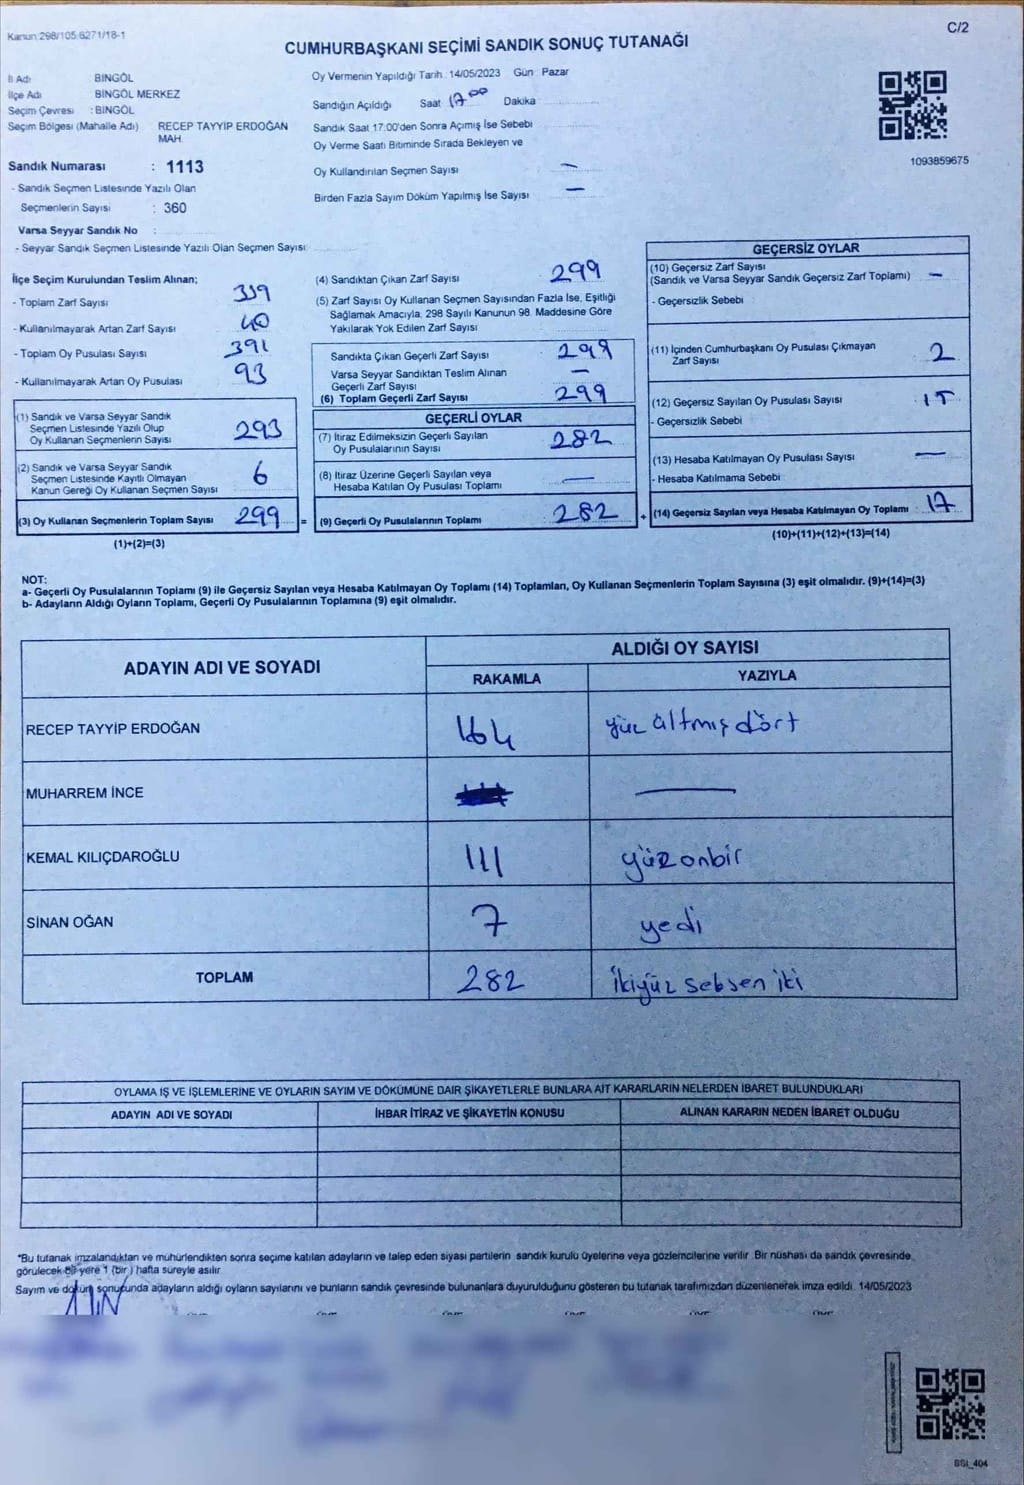 Kanun:298/105,6271/18-1
C/2
CUMHURBAŞKANI SEÇİMİ SANDIK SONUÇ TUTANAĞI
İl Adı BİNGÖL
İlçe Adı BİNGÖL MERKEZ
Seçim Çevresi : BİNGÖL
Seçim Bölgesi (Mahalle Adı) RECEP TAYYİP ERDOĞAN
MAH.
Sandık Numarası : 1113
- Sandık Seçmen Listesinde Yazılı Olan
Seçmenlerin Sayısı : 360
Varsa Seyyar Sandık No :
- Seyyar Sandık Seçmen Listesinde Yazılı Olan Seçmen Sayısı:
Oy Vermenin Yapıldığı Tarih : 14/05/2023 Gün : Pazar
Sandığın Açıldığı Saat 17.00 Dakika
Sandık Saat 17:00'den Sonra Açımış İse Sebebi
Oy Verme Saati Bitiminde Sırada Bekleyen ve
Oy Kullandırılan Seçmen Sayısı —
Birden Fazla Sayım Döküm Yapılmış İse Sayısı —
1093859675
İlçe Seçim Kurulundan Teslim Alınan;
- Toplam Zarf Sayısı 339
- Kullanılmayarak Artan Zarf Sayısı 40
- Toplam Oy Pusulası Sayısı 391
- Kullanılmayarak Artan Oy Pusulası 93
(1) Sandık ve Varsa Seyyar Sandık
Seçmen Listesinde Yazılı Olup
Oy Kullanan Seçmenlerin Sayısı 293
(2) Sandık ve Varsa Seyyar Sandık
Seçmen Listesinde Kayıtlı Olmayan
Kanun Gereği Oy Kullanan Seçmen Sayısı 6
(3) Oy Kullanan Seçmenlerin Toplam Sayısı 299 =
(1)+(2)=(3)
(4) Sandıktan Çıkan Zarf Sayısı 299
(5) Zarf Sayısı Oy Kullanan Seçmen Sayısından Fazla İse, Eşitliği
Sağlamak Amacıyla, 298 Sayılı Kanunun 98. Maddesine Göre
Yakılarak Yok Edilen Zarf Sayısı
Sandıkta Çıkan Geçerli Zarf Sayısı 299
Varsa Seyyar Sandıktan Teslim Alınan
Geçerli Zarf Sayısı —
(6) Toplam Geçerli Zarf Sayısı 299
GEÇERLİ OYLAR
(7) İtiraz Edilmeksizin Geçerli Sayılan
Oy Pusulalarının Sayısı 282
(8) İtiraz Üzerine Geçerli Sayılan veya
Hesaba Katılan Oy Pusulası Toplamı —
(9) Geçerli Oy Pusulalarının Toplamı 282 +
GEÇERSİZ OYLAR
(10) Geçersiz Zarf Sayısı
(Sandık ve Varsa Seyyar Sandık Geçersiz Zarf Toplamı) —
- Geçersizlik Sebebi
(11) İçinden Cumhurbaşkanı Oy Pusulası Çıkmayan
Zarf Sayısı 2
(12) Geçersiz Sayılan Oy Pusulası Sayısı 15
- Geçersizlik Sebebi
(13) Hesaba Katılmayan Oy Pusulası Sayısı —
- Hesaba Katılmama Sebebi
(14) Geçersiz Sayılan veya Hesaba Katılmayan Oy Toplamı : 17
(10)+(11)+(12)+(13)=(14)
NOT:
a- Geçerli Oy Pusulalarının Toplamı (9) ile Geçersiz Sayılan veya Hesaba Katılmayan Oy Toplamı (14) Toplamları, Oy Kullanan Seçmenlerin Toplam Sayısına (3) eşit olmalıdır. (9)+(14)=(3)
b- Adayların Aldığı Oyların Toplamı, Geçerli Oy Pusulalarının Toplamına (9) eşit olmalıdır.
ADAYIN ADI VE SOYADI
ALDIĞI OY SAYISI
RAKAMLA YAZIYLA
RECEP TAYYİP ERDOĞAN 164 yüz altmış dört
MUHARREM İNCE —
KEMAL KILIÇDAROĞLU 111 yüzonbir
SİNAN OĞAN 7 yedi
TOPLAM 282 ikiyüz seksen iki
OYLAMA İŞ VE İŞLEMLERİNE VE OYLARIN SAYIM VE DÖKÜMÜNE DAİR ŞİKAYETLERLE BUNLARA AİT KARARLARIN NELERDEN İBARET BULUNDUKLARI
ADAYIN ADI VE SOYADI İHBAR İTİRAZ VE ŞİKAYETİN KONUSU ALINAN KARARIN NEDEN İBARET OLDUĞU
*Bu tutanak imzalandıktan ve mühürlendikten sonra seçime katılan adayların ve talep eden siyasi partilerin sandık kurulu üyelerine veya gözlemcilerine verilir. Bir nüshası da sandık çevresinde
görülecek bir yere 1 (bir) hafta süreyle asılır.
Sayım ve döküm sonucunda adayların aldığı oyların sayılarını ve bunların sandık çevresinde bulunanlara duyurulduğunu gösteren bu tutanak tarafımızdan düzenlenerek imza edildi. 14/05/2023
SSI_404